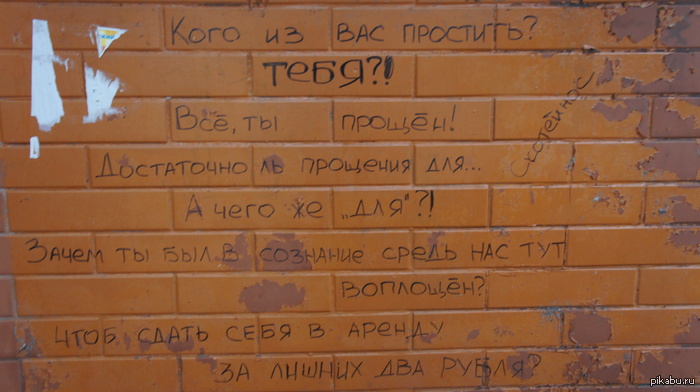 Кого из вас простить?
ТЕБЯ?!
Всё, ты прощён!
Достаточно ль прощения для...
А чего же „для"?!
Зачем ты был в сознание средь нас тут
воплощён?
чтоб сдать себя в аренду
за лишних два рубля?
pikabu.ru